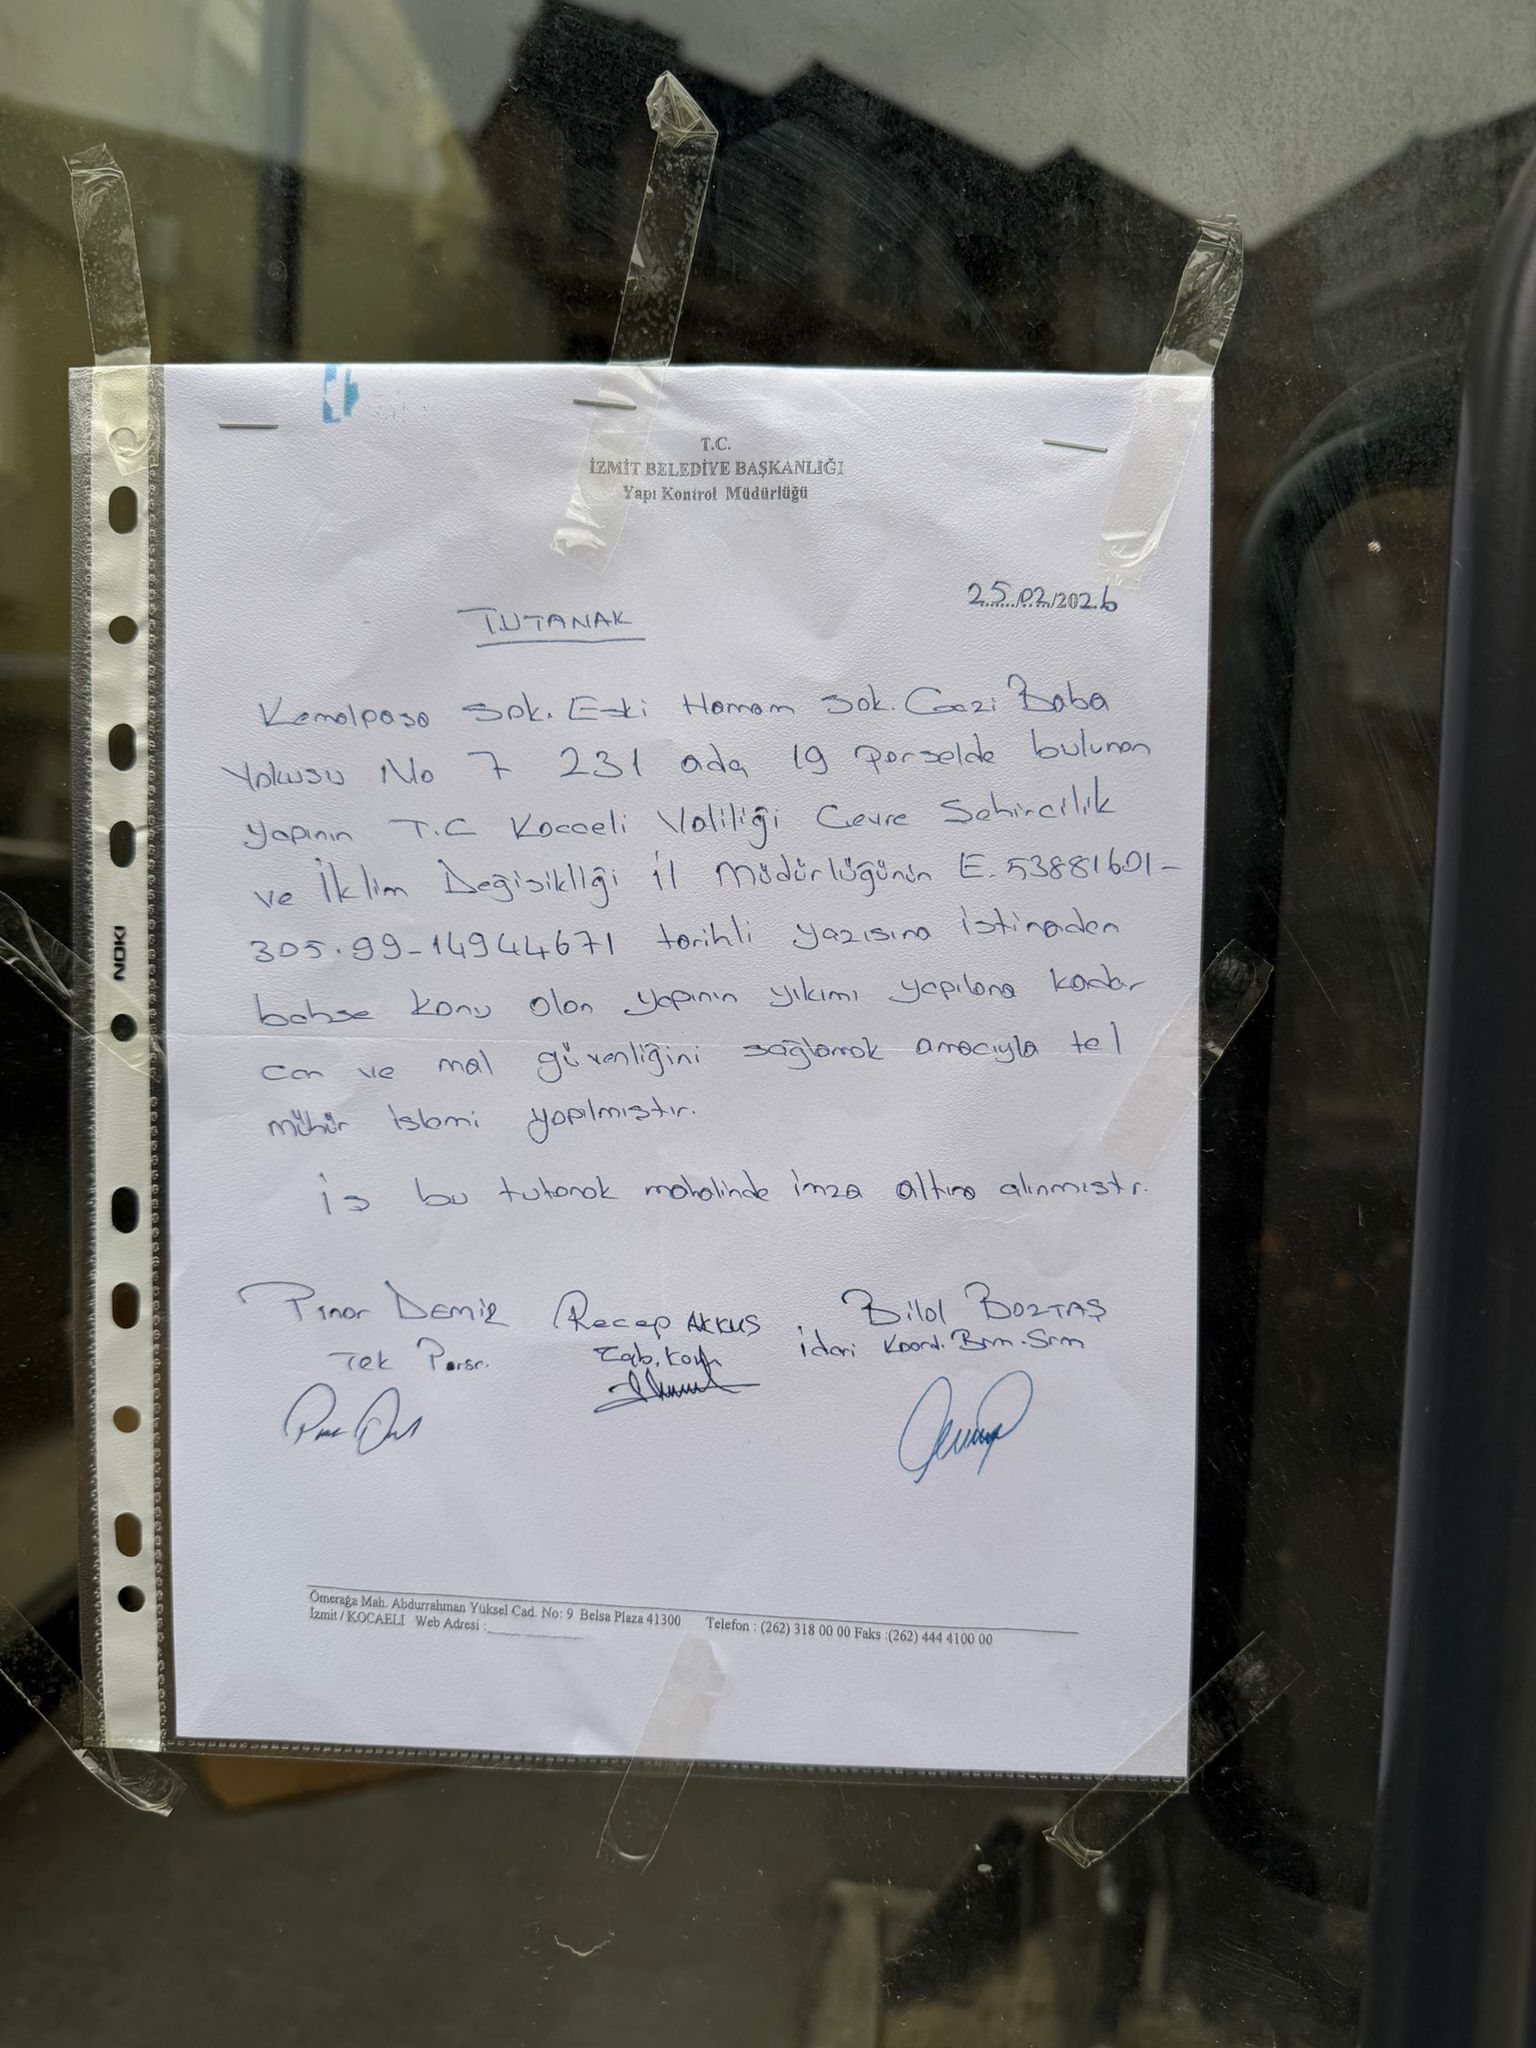 T.C.
İZMİT BELEDİYE BAŞKANLIĞI
Yapı Kontrol Müdürlüğü
25/02/2026
TUTANAK
Kemalpaşa Sok. Eski Hamam Sok. Gazi Baba
Yokuşu No 7 231 ada 19 parselde bulunan
yapının T.C Kocaeli Valiliği Çevre Şehircilik
ve İklim Değişikliği İl Müdürlüğünün E.53881601-
305.99-14944671 tarihli yazısına istinaden
bahse konu olan yapının yıkımı yapılana kadar
can ve mal güvenliğini sağlamak amacıyla tel
mühür işlemi yapılmıştır.
İş bu tutanak mahalinde imza altına alınmıştır.
Pınar DEMİR Recep AKKUŞ Bilal BOZTAŞ
Tek Pers. Zab. İdari Koord. Brm. Srm
NOKI
Ömerağa Mah. Abdurrahman Yüksel Cad. No: 9 Belsa Plaza 41300 Telefon : (262) 318 00 00 Faks :(262) 444 4100 00
İzmit / KOCAELİ Web Adresi :